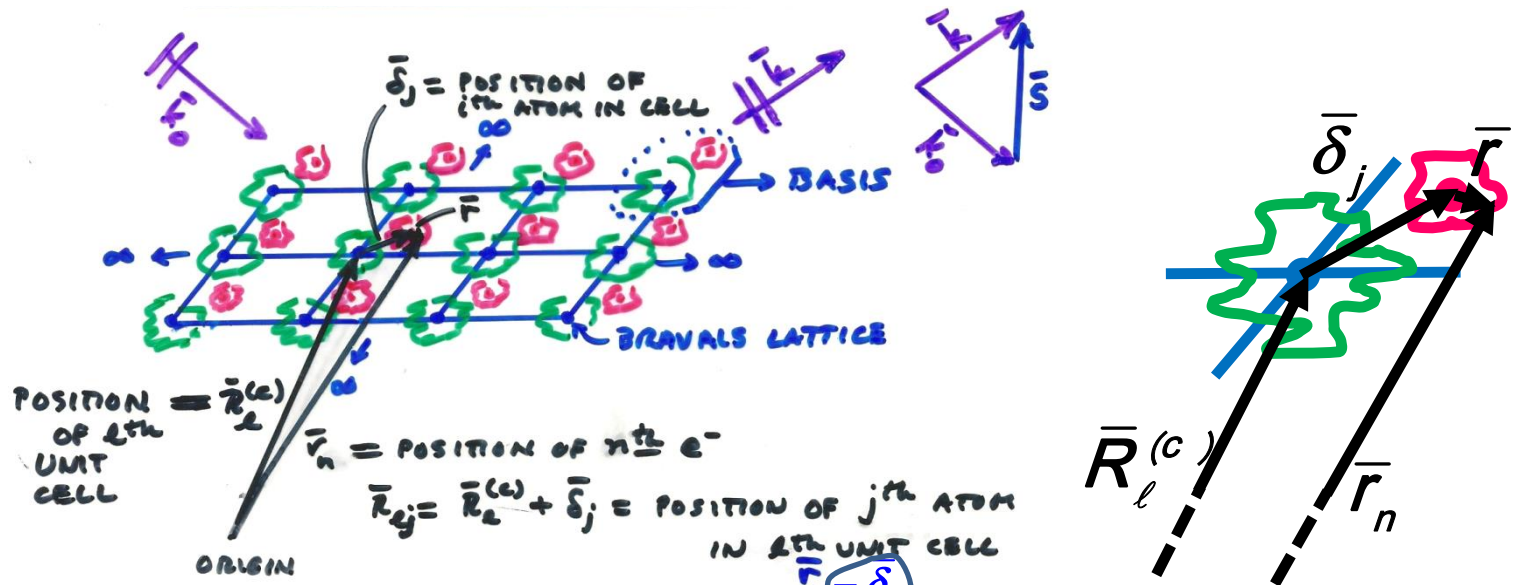 k̄₀
δ̄ⱼ = POSITION OF
iᵗʰ ATOM IN CELL
k̄
k̄
k̄₀
S̄
∞
BASIS
r̄
∞
∞
BRAVALS LATTICE
∞
POSITION = R̄ₗ⁽ᶜ⁾
OF ℓᵗʰ
UNIT
CELL
r̄ₙ = POSITION OF nᵗʰ e⁻
R̄ₗⱼ = R̄ₗ⁽ᶜ⁾ + δ̄ⱼ = POSITION OF jᵗʰ ATOM
IN ℓᵗʰ UNIT CELL
ORIGIN
r̄
δ̄ⱼ
r̄
R̄ₗ⁽ᶜ⁾
r̄ₙ